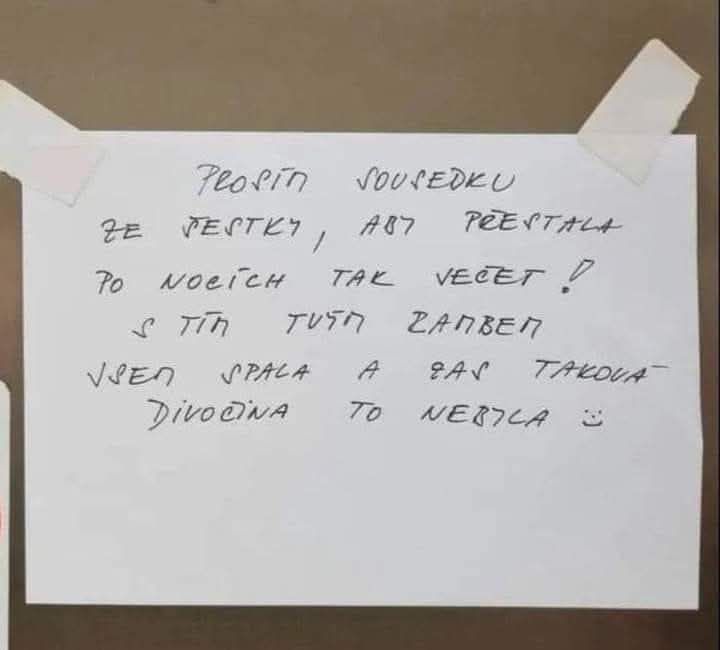 PROSÍM SOUSEDKU
ZE ŠESTKY, ABY PŘESTALA
PO NOCÍCH TAK JEČET!
S TÍM TVÝM RAMBEM
JSEM SPALA A ZAS TAKOVÁ
DIVOČINA TO NEBYLA :)